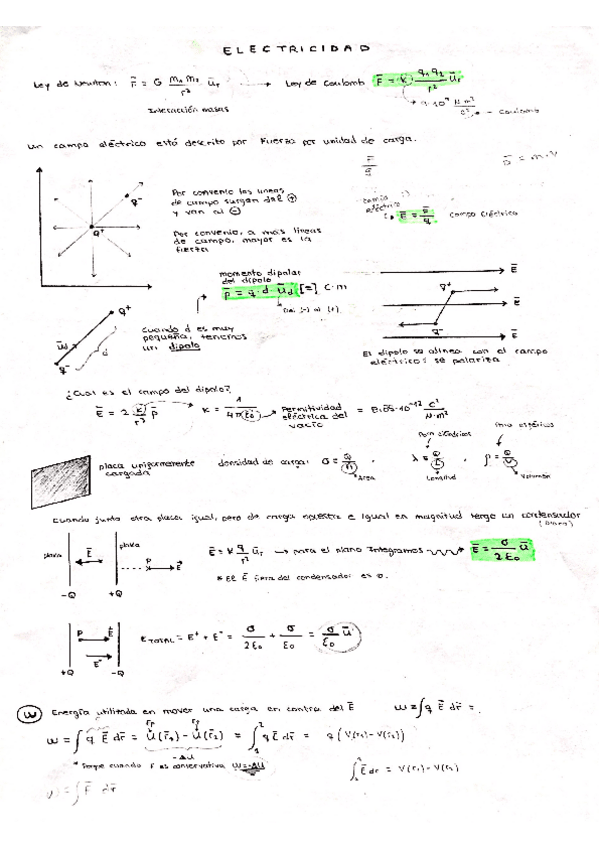 ELECTRICIDAD
Ley de Newton: F̄ = G m₁ m₂ / r² ūr → Ley de Coulomb F̄ = K · q₁ q₂ / r² ūr
Interacción masas
9·10⁹ N m² / C² → Coulomb
Un campo eléctrico está descrito por Fuerza por unidad de carga.
F / q
p̄ = m·v
Por convenio las líneas
de campo surgen del ⊕
y van al ⊖
q⁻
q⁺
campo
eléctrico
Ē = F̄ / q campo eléctrico
Por convenio, a más líneas
de campo, mayor es la
fuerza
momento dipolar
del dipolo
p̄ = q · d · ūd [=] C·m
Del (-) al (+)
Ē
q⁺
Ē
q⁻
Ē
q⁺
ūd
d
q⁻
Cuando d es muy
pequeña, tenemos
un dipolo
El dipolo se alinea con el campo
eléctrico: se polariza
¿Cual es el campo del dipolo?
Ē = 2 K / r³ p̄
K = 1 / 4π ε₀ → Permitividad eléctrica del vacío = 8.85·10⁻¹² C² / N·m²
Para cilíndricos
Para esféricos
placa uniformemente
cargada
densidad de carga: σ = Q / A , λ = Q / L , ρ = Q / V
Área
Longitud
Volumen
Cuando junto otra placa igual, pero de carga opuesta e igual en magnitud tengo un condensador
(plano)
placa
placa
Ē
P
-Q
+Q
Ē = K q / r² ūr → para el plano integramos → Ē = σ / 2ε₀ ū
* El Ē fuera del condensador es 0.
P
E⁻
+Q
-Q
ETOTAL = E⁺ + E⁻ = σ / 2ε₀ + σ / ε₀ = σ / ε₀ ū
W Energía utilizada en mover una carga en contra del Ē W = ∫ q Ē dr̄ =
W = ∫ q Ē dr̄ = U(r̄₁) - U(r̄₂) = ∫₁² q Ē dr̄ = q (V(r₁) - V(r₂))
-ΔU
* Porque cuando F es conservativa W = -ΔU
∫ Ē dr = V(r₁) - V(r₂)
W = ∫ F̄ dr̄